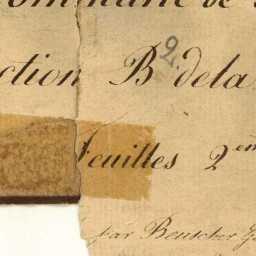 ommune de
ction B 2. dela
feuilles 2em
par Beuscher